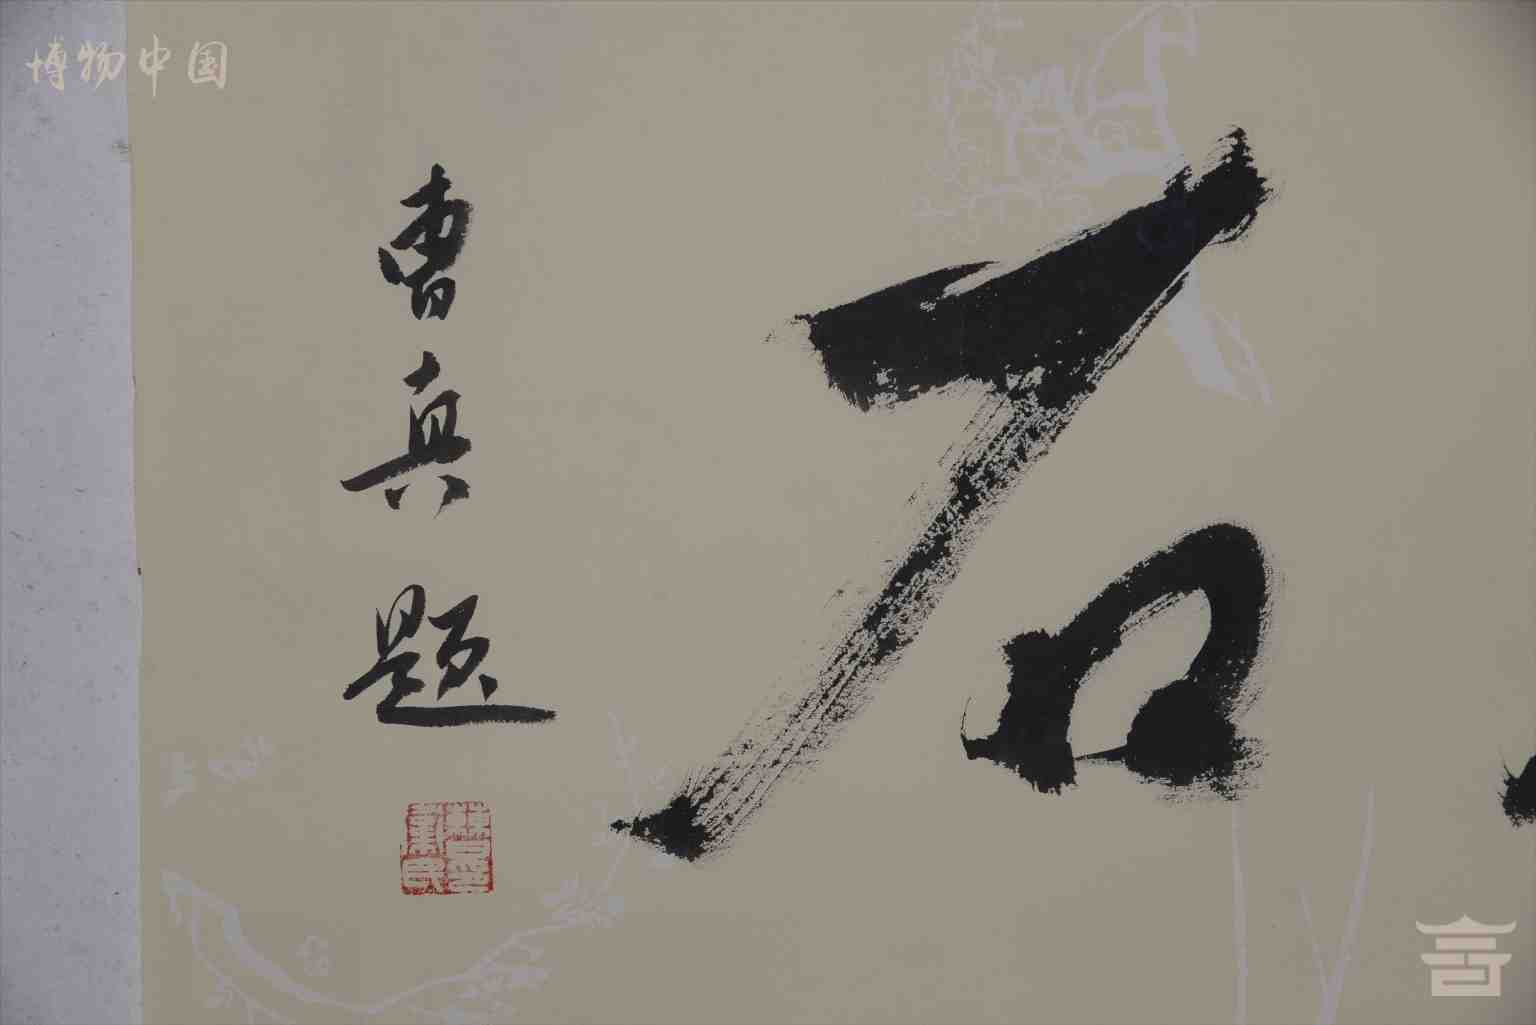 博物中国
石
曹真题